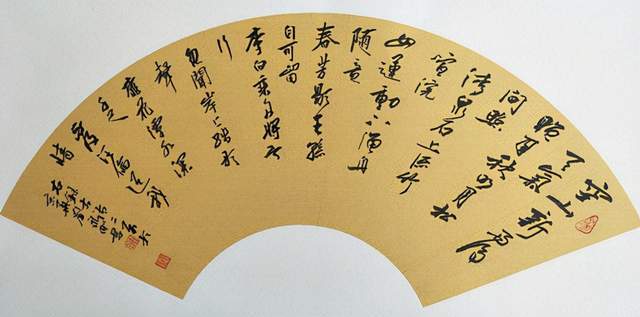 空山新雨後
天氣
晚来秋明月松
间照
清泉石上流竹
喧浣
女蓮動下漁舟
随意
春芳歇王孫
自可留
李白乘舟將欲
行
忽聞岸上踏歌
聲
桃花潭水深
千尺
不及汪倫送我
情